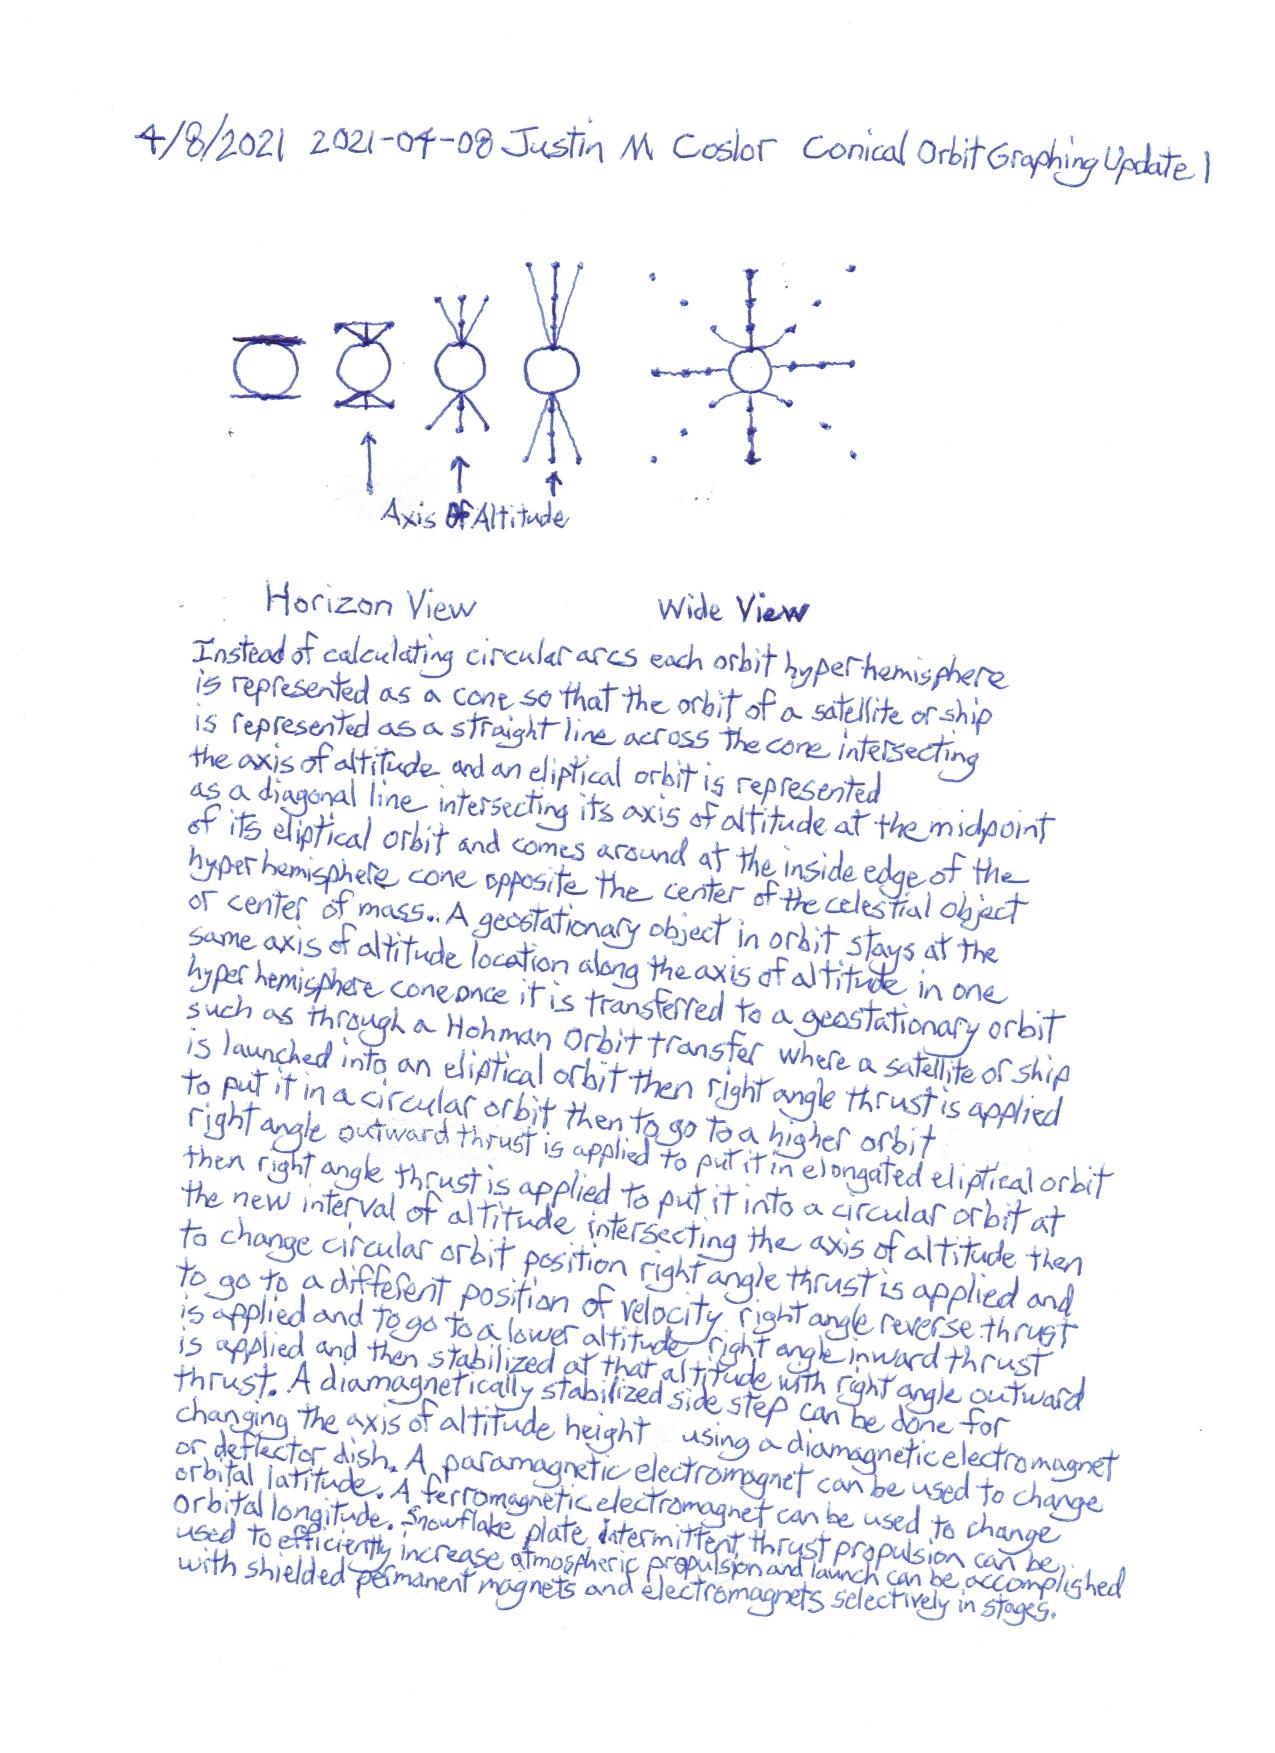 4/8/2021 2021-04-08 Justin M Coslor Conical Orbit Graphing Update 1
Axis Of Altitude
Horizon View Wide View
Instead of calculating circular arcs each orbit hyperhemisphere
is represented as a cone so that the orbit of a satellite or ship
is represented as a straight line across the cone intersecting
the axis of altitude and an eliptical orbit is represented
as a diagonal line intersecting its axis of altitude at the midpoint
of its eliptical orbit and comes around at the inside edge of the
hyperhemisphere cone opposite the center of the celestial object
or center of mass. A geostationary object in orbit stays at the
same axis of altitude location along the axis of altitude in one
hyperhemisphere cone once it is transferred to a geostationary orbit
such as through a Hohman Orbit transfer where a satellite or ship
is launched into an eliptical orbit then right angle thrust is applied
to put it in a circular orbit then to go to a higher orbit
right angle outward thrust is applied to put it in elongated eliptical orbit
then right angle thrust is applied to put it into a circular orbit at
the new interval of altitude intersecting the axis of altitude then
to change circular orbit position right angle thrust is applied and
to go to a different position of velocity right angle reverse thrust
is applied and to go to a lower altitude right angle inward thrust
is applied and then stabilized at that altitude with right angle outward
thrust. A diamagnetically stabilized side step can be done for
changing the axis of altitude height using a diamagnetic electromagnet
or deflector dish. A paramagnetic electromagnet can be used to change
orbital latitude. A ferromagnetic electromagnet can be used to change
orbital longitude. Snowflake plate intermittent thrust propulsion can be
used to efficiently increase atmospheric propulsion and launch can be accomplished
with shielded permanent magnets and electromagnets selectively in stages.